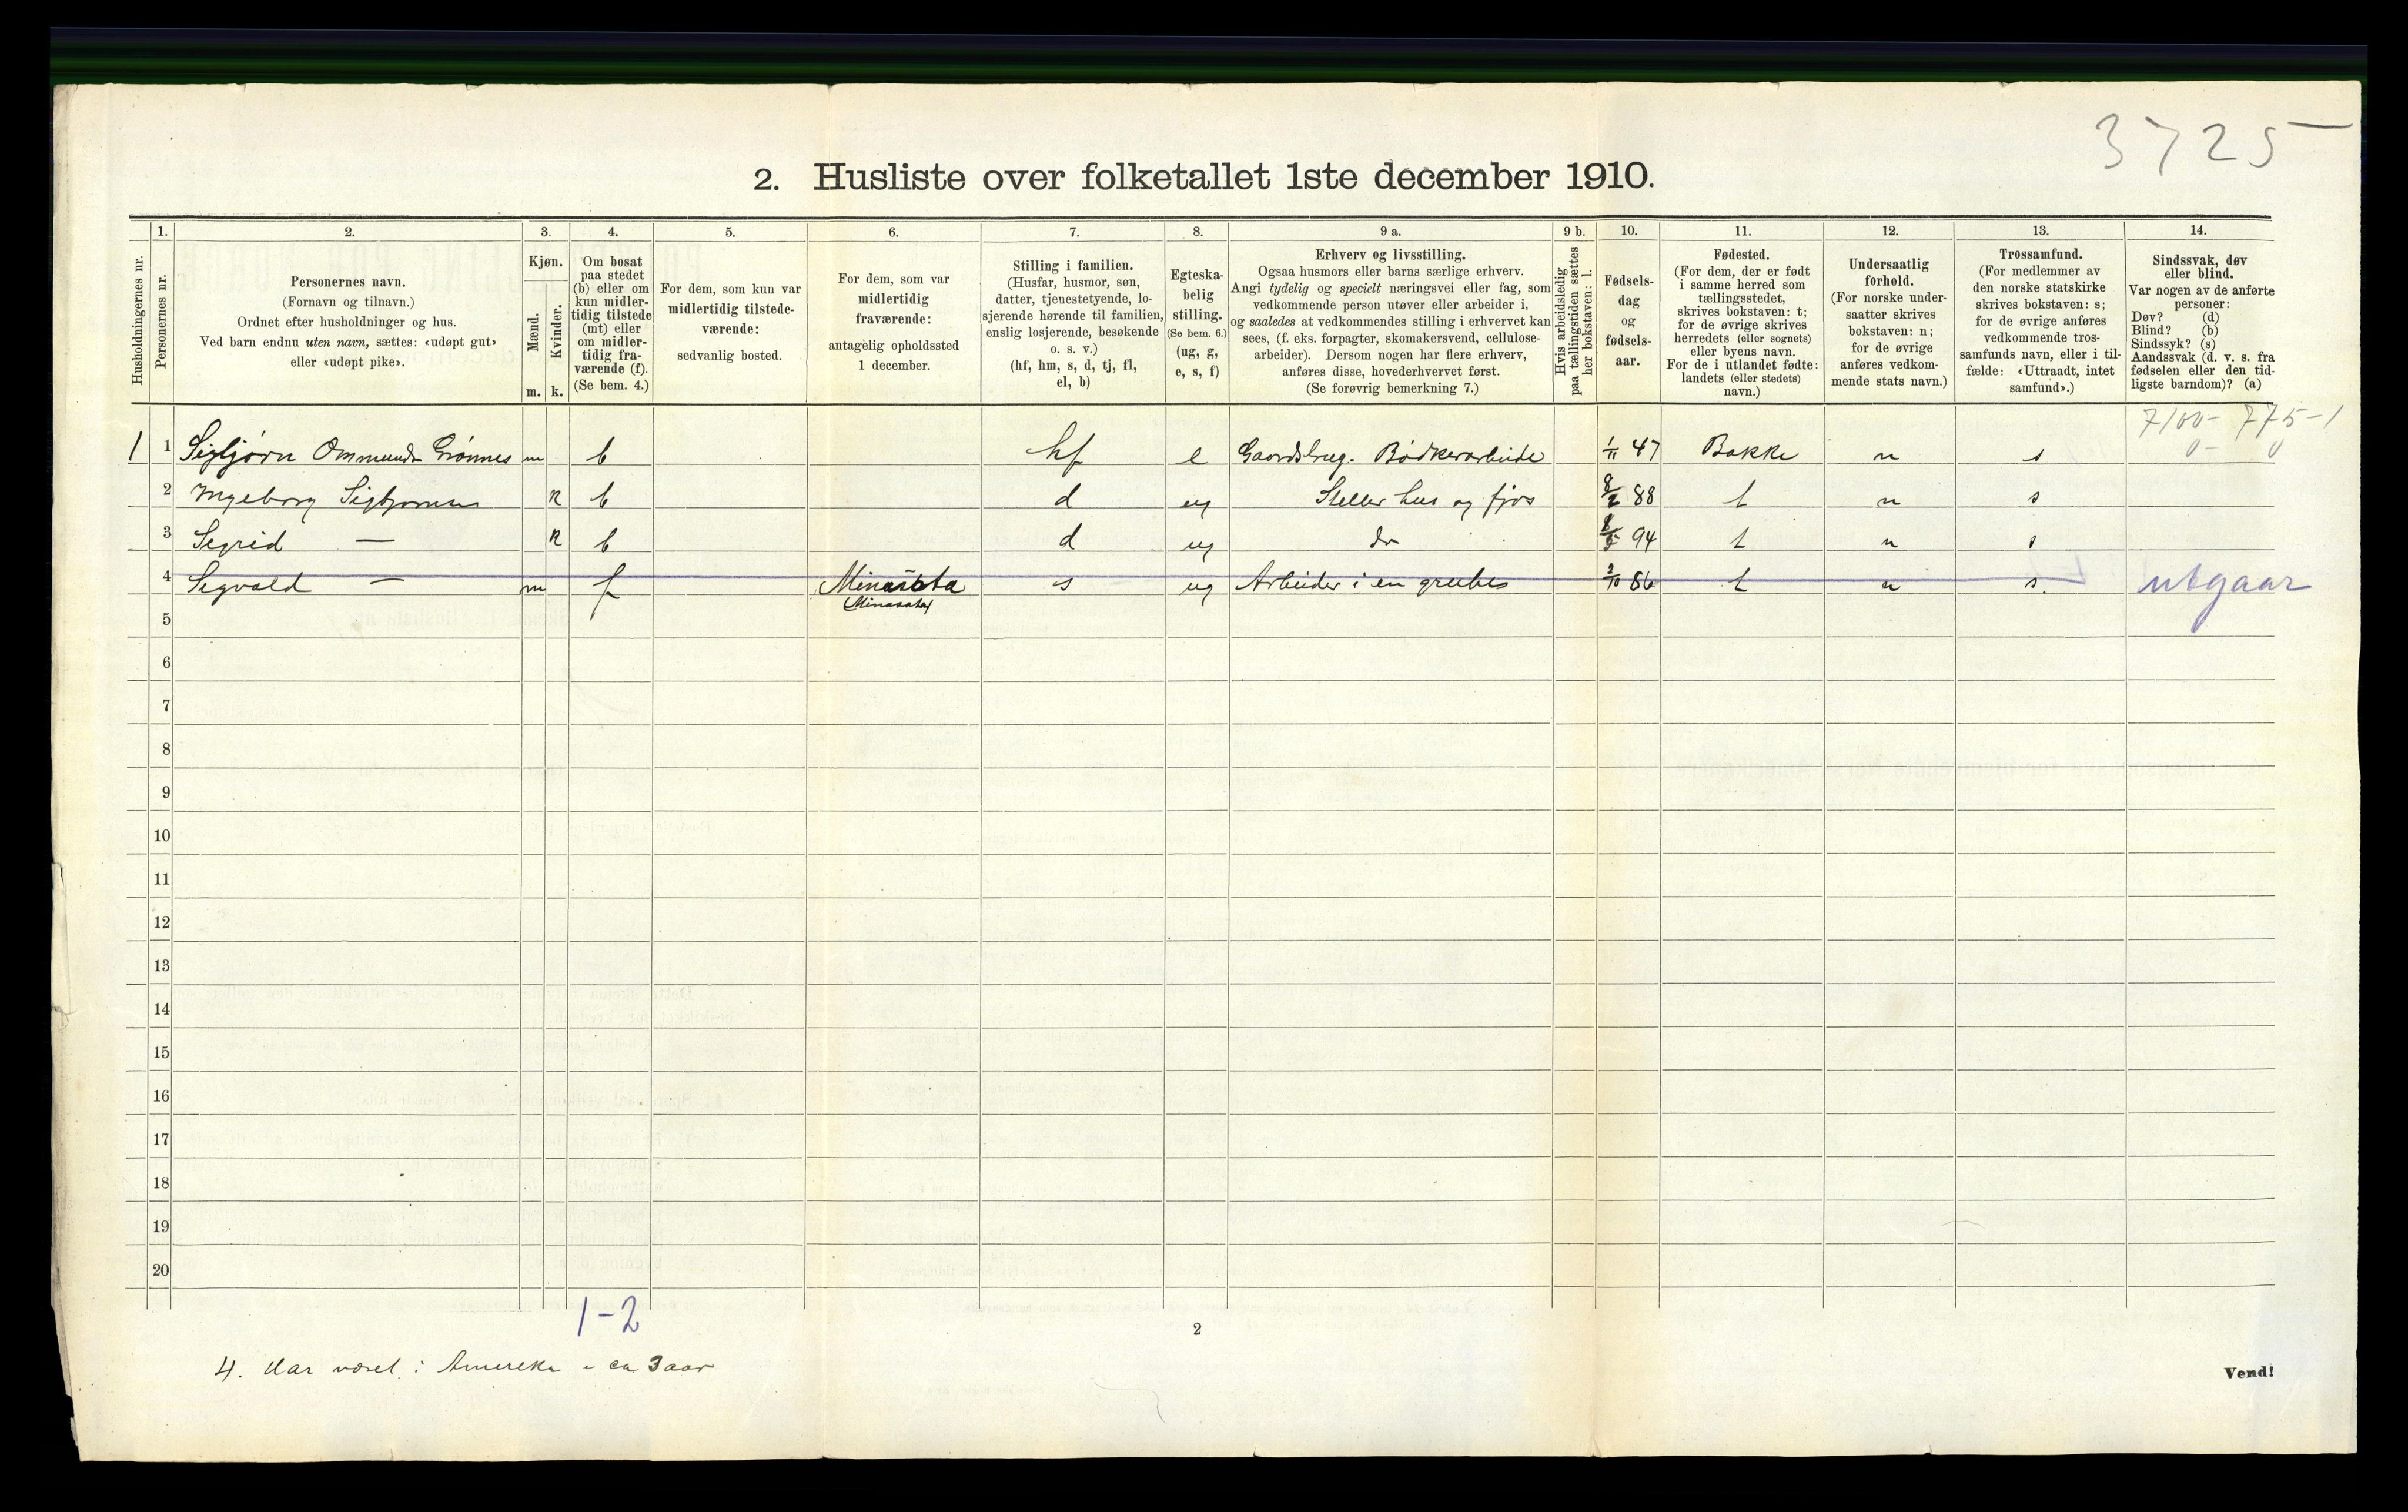 3725
2. Husliste over folketallet 1ste december 1910.
Husholdningernes nr.
1.
Personernes nr.
2.
Personernes navn.
(Fornavn og tilnavn.)
Ordnet efter husholdninger og hus.
Ved barn endnu uten navn, sættes: «udøpt gut»
eller «udøpt pike».
3.
Kjøn.
Mænd.
Kvinder.
m. k.
4.
Om bosat
paa stedet
(b) eller om
kun midler-
tidig tilstede
(mt) eller
om midler-
tidig fra-
værende (f).
(Se bem. 4.)
5.
For dem, som kun var
midlertidig tilstede-
værende:
sedvanlig bosted.
6.
For dem, som var
midlertidig
fraværende:
antagelig opholdssted
1 december.
7.
Stilling i familien.
(Husfar, husmor, søn,
datter, tjenestetyende, lo-
sjerende hørende til familien,
enslig losjerende, besøkende
o. s. v.)
(hf, hm, s, d, tj, fl,
el, b)
8.
Egteska-
belig
stilling.
(Se bem. 6.)
(ug, g,
e, s, f)
9 a.
Erhverv og livsstilling.
Ogsaa husmors eller barns særlige erhverv.
Angi tydelig og specielt næringsvei eller fag, som
vedkommende person utøver eller arbeider i,
og saaledes at vedkommendes stilling i erhvervet kan
sees, (f. eks. forpagter, skomakersvend, cellulose-
arbeider). Dersom nogen har flere erhverv,
anføres disse, hovederhvervet først.
(Se forøvrig bemerkning 7.)
9 b.
Hvis arbeidsledig
paa tællingstiden sættes
her bokstaven: l.
10.
Fødsels-
dag
og
fødsels-
aar.
11.
Fødested.
(For dem, der er født
i samme herred som
tællingsstedet,
skrives bokstaven: t;
for de øvrige skrives
herredets (eller sognets)
eller byens navn.
For de i utlandet fødte:
landets (eller stedets)
navn.)
12.
Undersaatlig
forhold.
(For norske under-
saatter skrives
bokstaven: n;
for de øvrige
anføres vedkom-
mende stats navn.)
13.
Trossamfund.
(For medlemmer av
den norske statskirke
skrives bokstaven: s;
for de øvrige anføres
vedkommende tros-
samfunds navn, eller i til-
fælde: «Uttraadt, intet
samfund».)
14.
Sindssvak, døv
eller blind.
Var nogen av de anførte
personer:
Døv? (d)
Blind? (b)
Sindssyk? (s)
Aandssvak (d. v. s. fra
fødselen eller den tid-
ligste barndom)? (a)
7100- 775-1
0- 0
1 1 Sigbjørn Ommunds Grønnes m b hf e Gaardsbrug. Bødkerarbeide 1/11 47 Bakke n s
2 Ingeborg Sigbjørnsen k b d ug Steller hus og fjøs 8/2 88 t n s
3 Sigrid — k b d ug do 8/5 94 t n s
4 Sigvald — m f Minasota s ug Arbeider i en grube 2/10 86 t n s. utgaar
(Minasota)
5
6
7
8
9
10
11
12
13
14
15
16
17
18
19
20
1-2
2
4. Har været i Amerika i ca 3 aar
Vend!